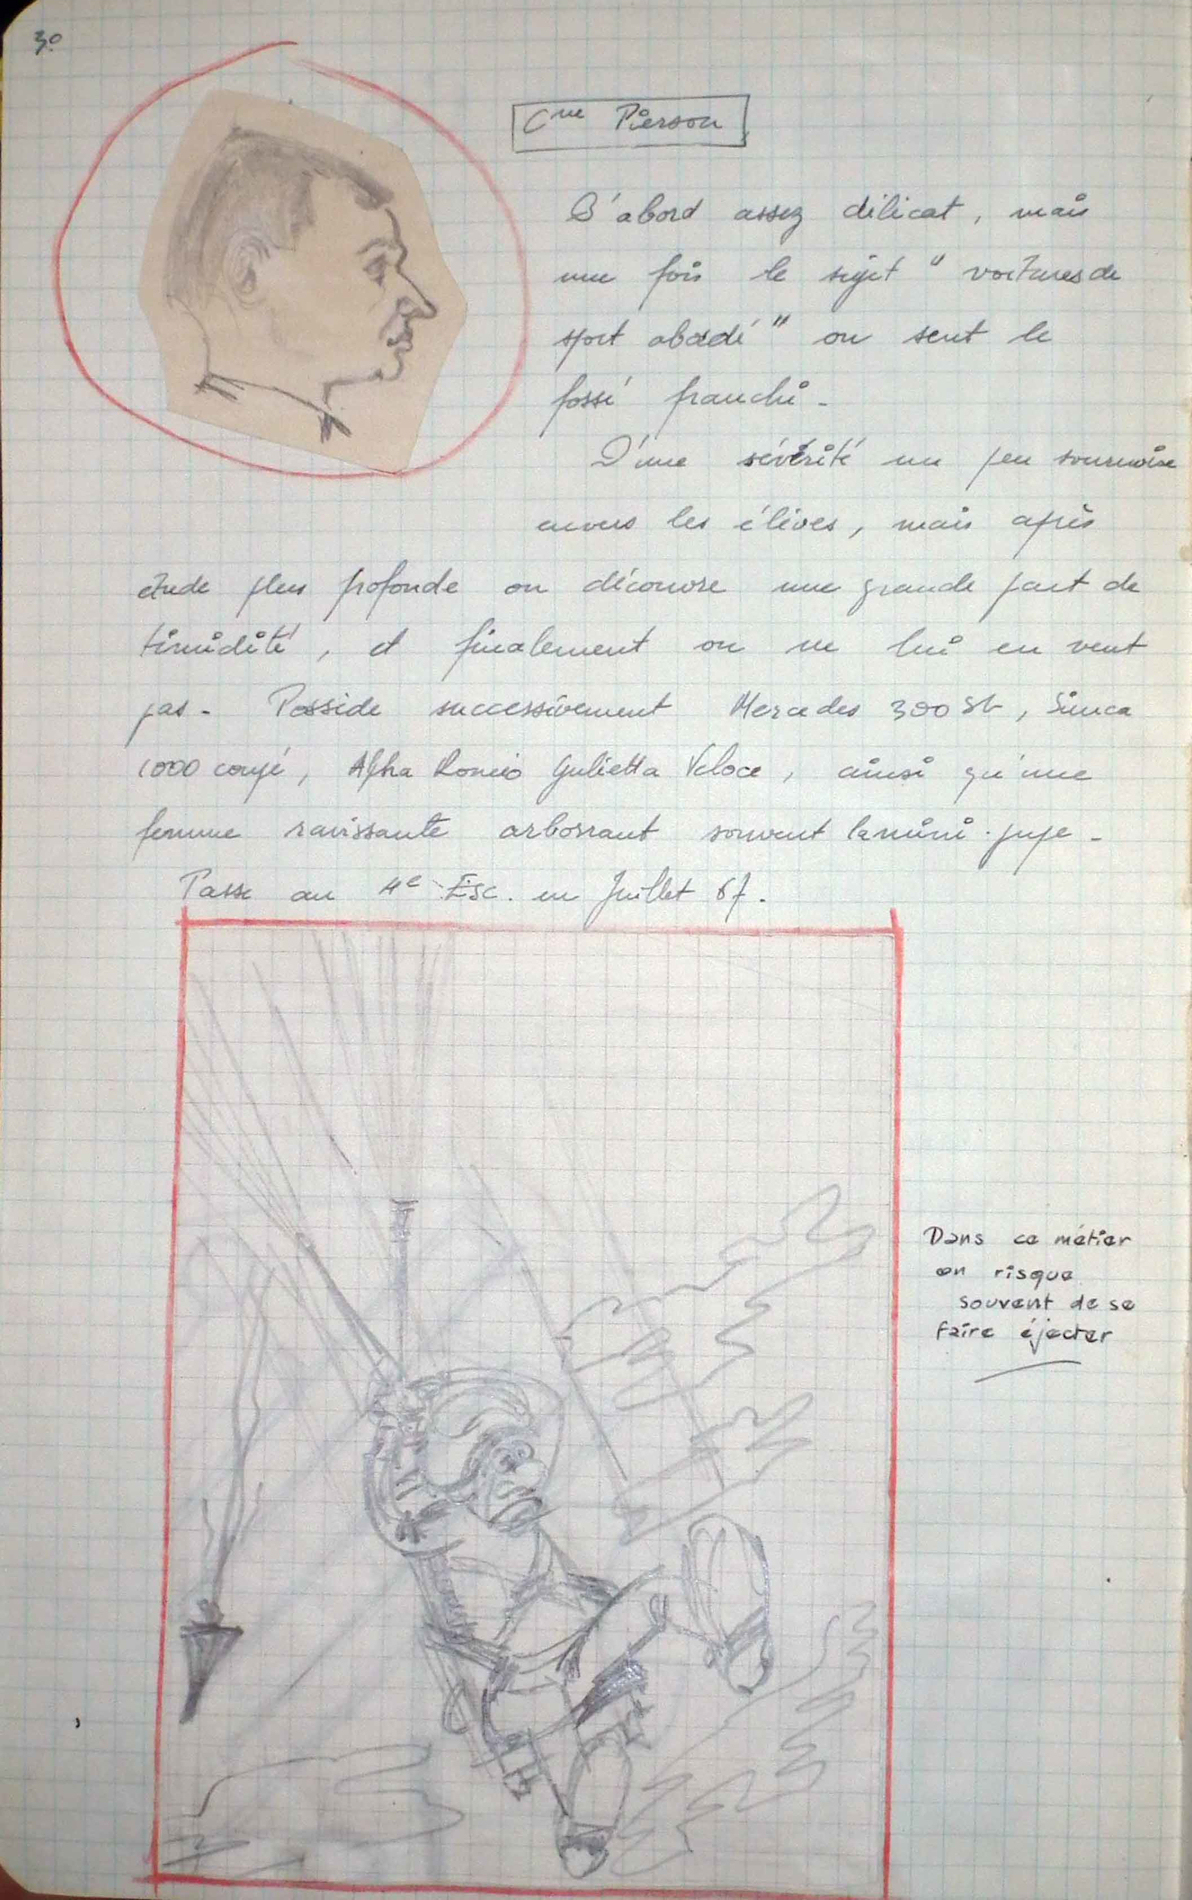 30
Cne Pierson
D'abord assez délicat, mais
une fois le sujet "voitures de
sport abordé" on sent le
fossé franchi -
D'une sévérité un peu sournoise
envers les élèves, mais après
étude plus profonde on découvre une grande part de
timidité, et finalement on ne lui en veut
pas - Possède successivement Mercedes 300 Sl, Simca
1000 coupé, Alpha Roméo Gulietta Veloce, ainsi qu'une
femme ravissante arborrant souvent la mini-jupe -
Passe au 4e Esc. en Juillet 67.
Dans ce métier
on risque
souvent de se
faire éjecter